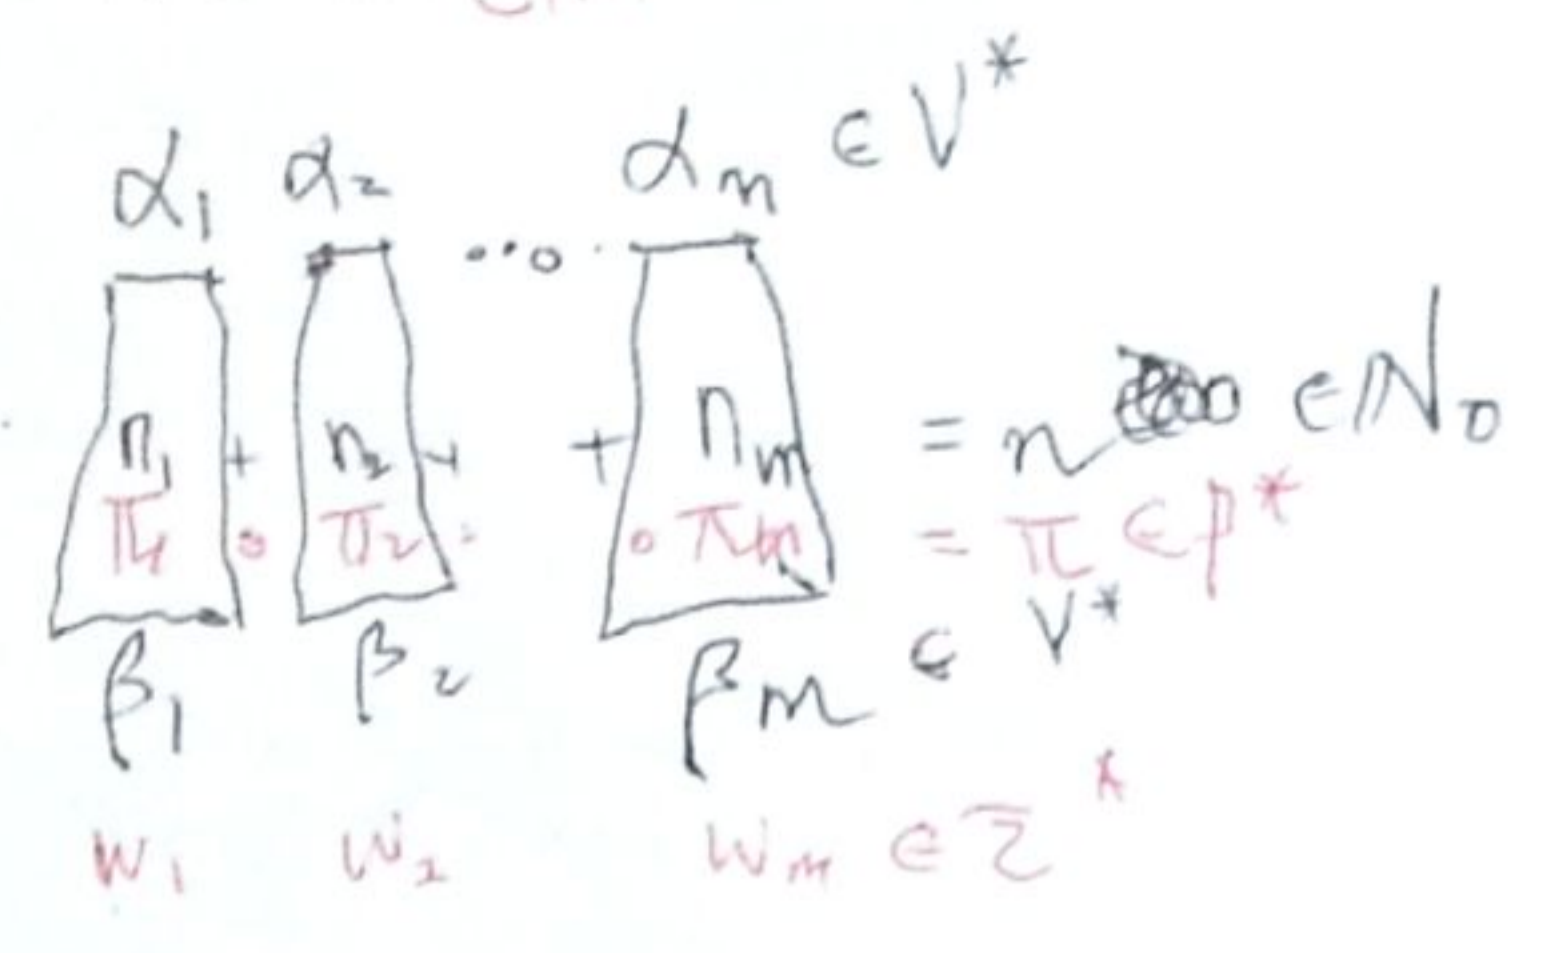 α₁ α₂ αₘ ∈ V*
n₁ + n₂ + ... + nₘ = n ∈ ℕ₀
π₁ ∘ π₂ ∘ πₘ = π ∈ P*
β₁ β₂ βₘ ∈ V*
w₁ w₂ wₘ ∈ Σ*